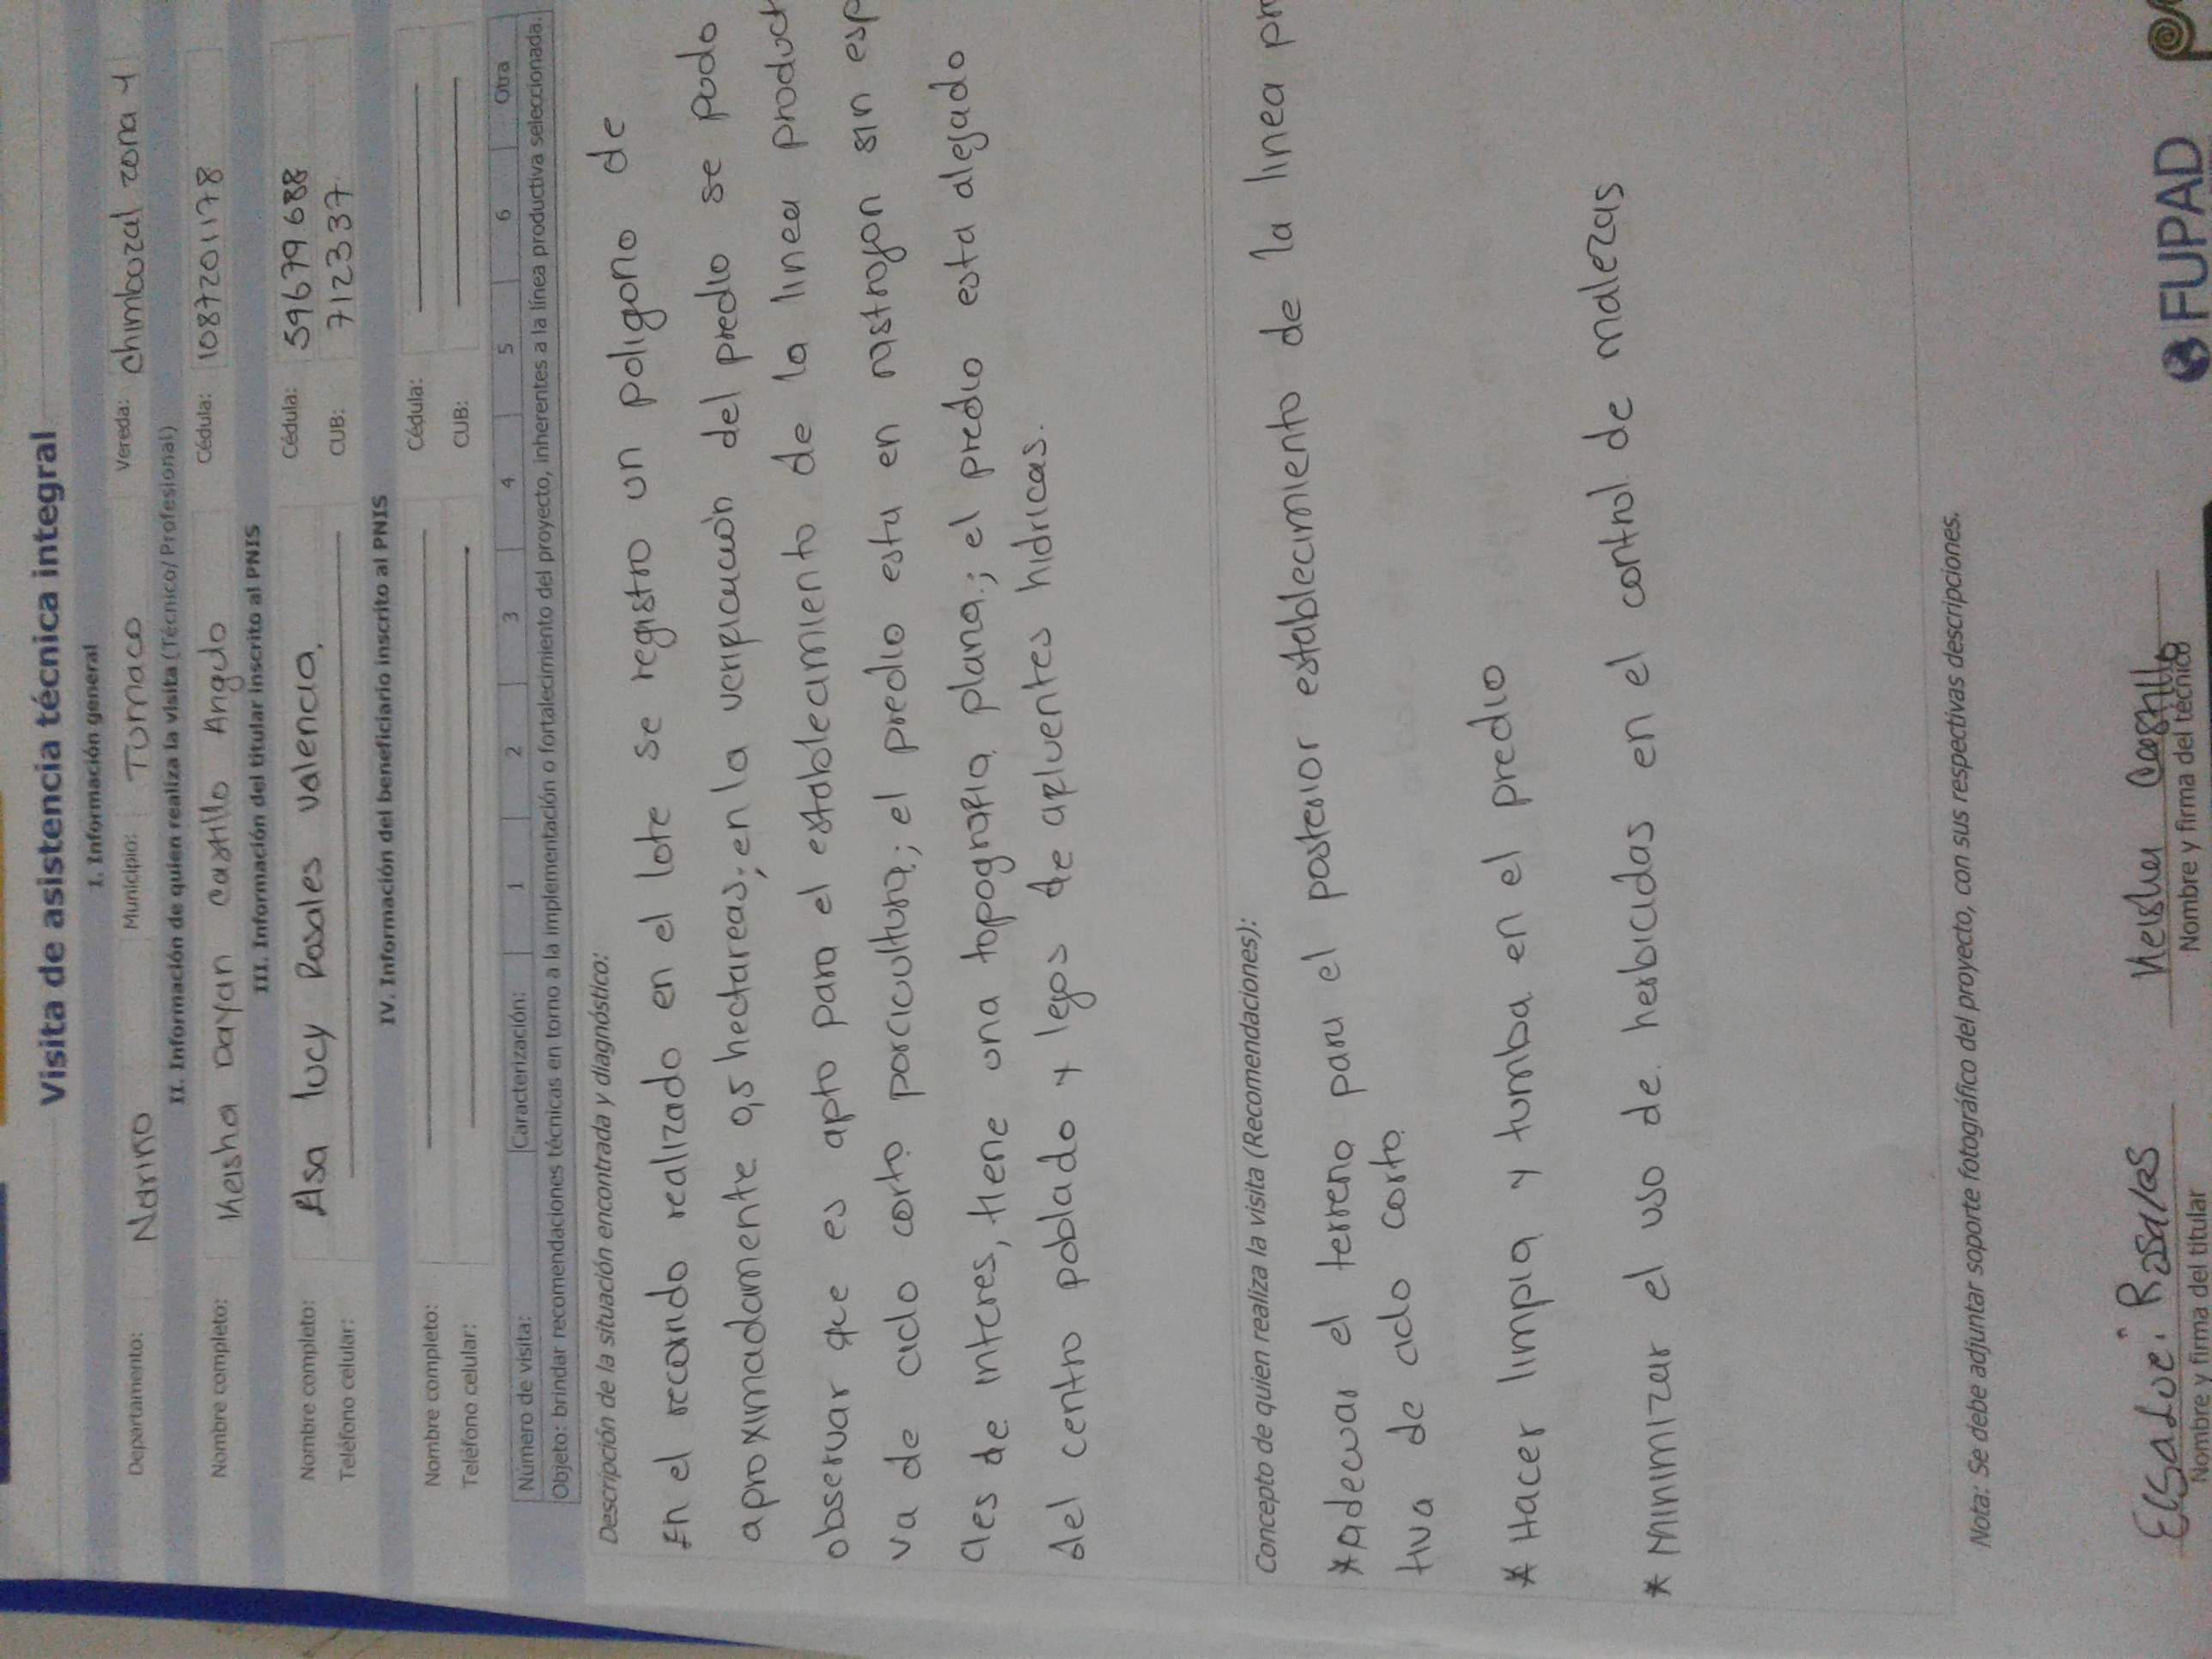 Visita de asistencia técnica integral
I. Información general
Departamento: Nariño Municipio: Tumaco Vereda: chimbuzal zona 4
II. Información de quien realiza la visita (Técnico/Profesional)
Nombre completo: Keisha Dayan Castillo Angulo Cédula: 1087201178
III. Información del titular inscrito al PNIS
Nombre completo: Elsa lucy Rosales valencia. Cédula: 59679688
Teléfono celular: CUB: 712337
IV. Información del beneficiario inscrito al PNIS
Nombre completo: Cédula:
Teléfono celular: CUB:
Número de visita: Caracterización: 1 2 3 4 5 6 Otra
Objeto: brindar recomendaciones técnicas en torno a la implementación o fortalecimiento del proyecto, inherentes a la línea productiva seleccionada.
Descripción de la situación encontrada y diagnóstico:
En el recorrido realizado en el lote se registro un poligono de
aproximadamente 0,5 hectareas; en la verificación del predio se pudo
observar que es apto para el establecimiento de la linea product
va de ciclo corto porcicultura; el predio esta en rastrojon sin esp
cies de interes, tiene una topografia plana; el predio esta alejado
del centro poblado y lejos de afluentes hidricas.
Concepto de quien realiza la visita (Recomendaciones):
* Adecuar el terreno para el posterior establecimiento de la linea pr
tiva de ciclo corto
* Hacer limpia y tumba en el predio
* Minimizar el uso de herbicidas en el control de malezas
Nota: Se debe adjuntar soporte fotográfico del proyecto, con sus respectivas descripciones.
Elsa Luci Rosales Keisha Castillo
Nombre y firma del titular Nombre y firma del técnico
FUPAD